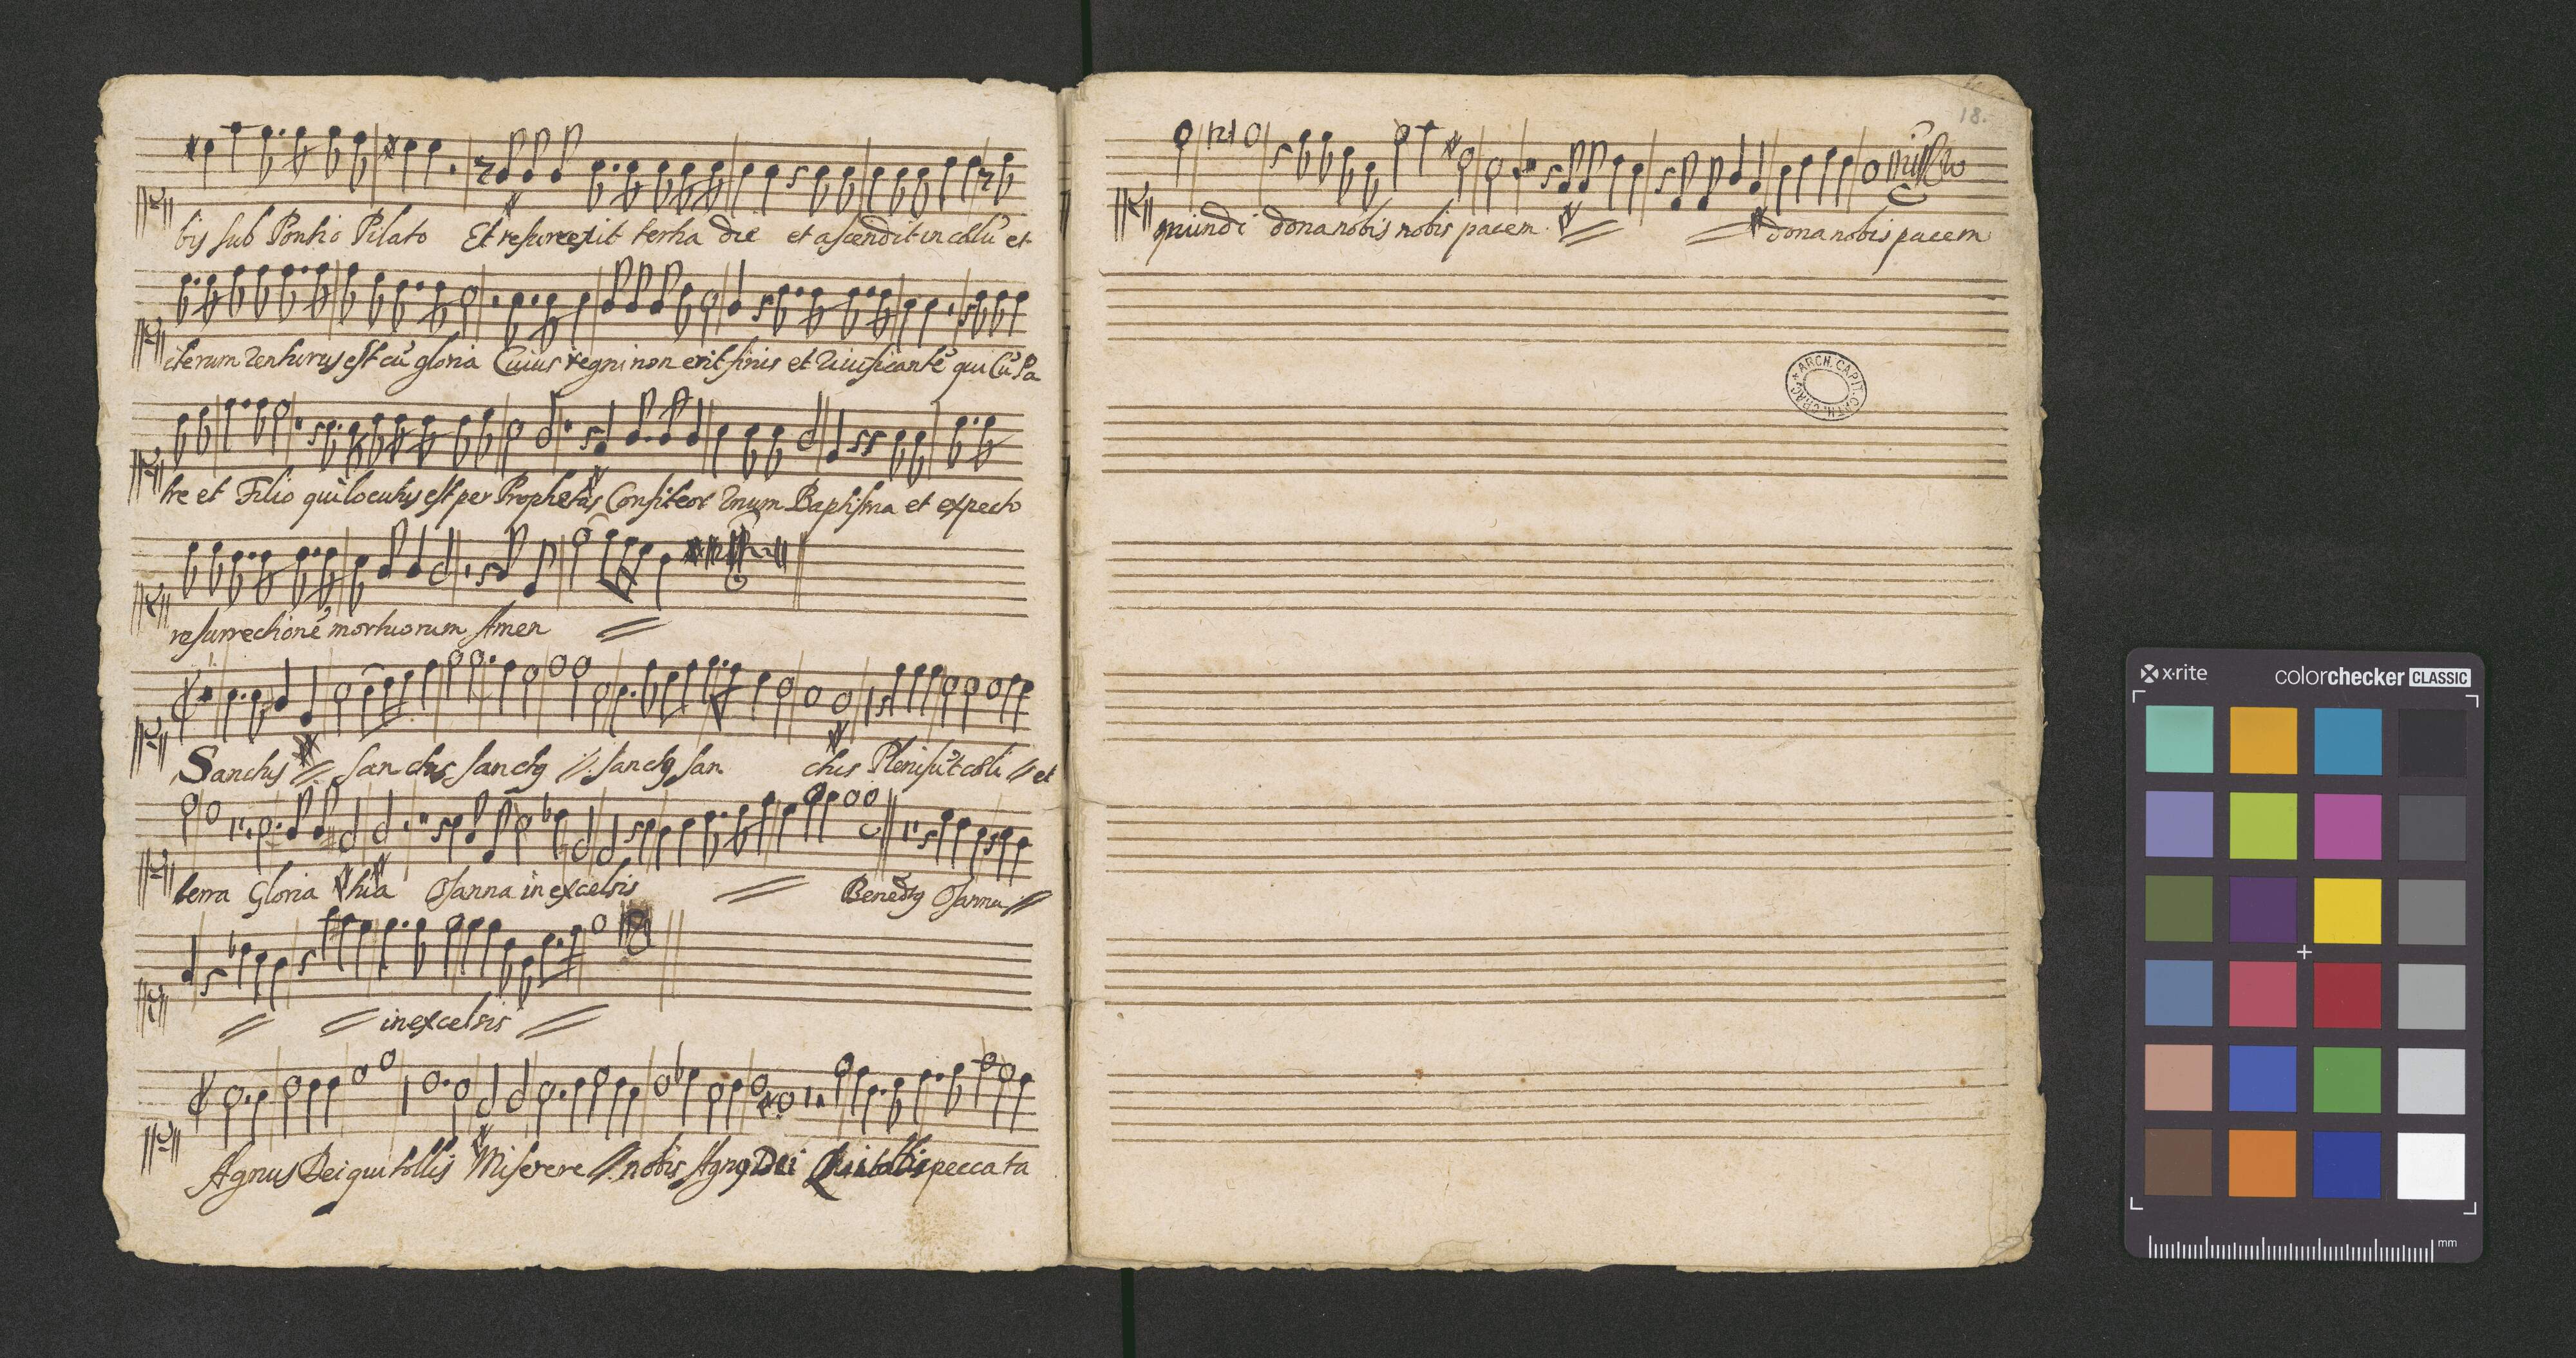 bis sub Pontio Pilato Et resurrexit tertia die et ascendit in cœlũ et
iterum venturus est cũ gloria Cuius regni non erit finis et vivificantẽ qui Cũ Pa
tre et Filio qui locutus est per Prophetas Confiteor unum Baptisma et expecto
resurrectionẽ mortuorum Amen
Sanctus sanctus sanctus sanctus san ctus Pleni sũt cœli et
terra Gloria tua Osanna in excelsis Benedictus Osanna
in excelsis
Agnus Dei qui tollis Miserere nobis Agnus Dei Qui tollis peccata
18.
mundi dona nobis nobis pacem dona nobis pacem
ARCH. CAPIT. CATH. CRAC.
x-rite
colorchecker CLASSIC
mm